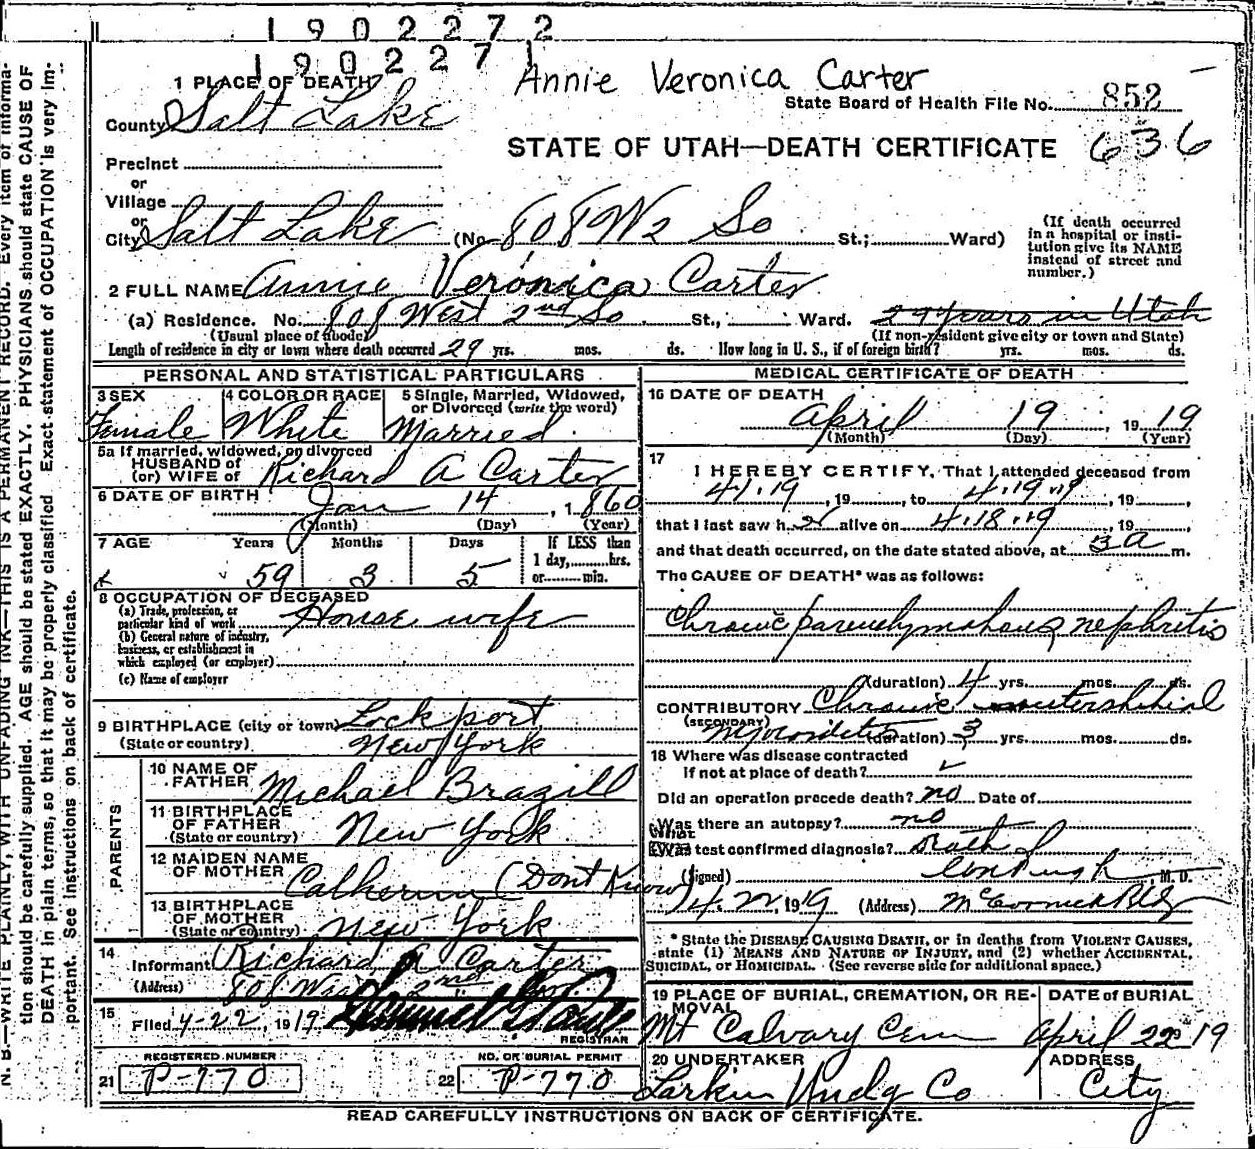 1902272
1902271
Annie Veronica Carter
1 PLACE OF DEATH
State Board of Health File No. 852
County Salt Lake
STATE OF UTAH—DEATH CERTIFICATE 636
Precinct
or
Village
or
City Salt Lake (No. 808 W 2 So St.; Ward)
(If death occurred in a hospital or institution give its NAME instead of street and number.)
2 FULL NAME Annie Veronica Carter
(a) Residence. No. 808 West 2nd So St., Ward. 29 years in Utah
(Usual place of abode) (If non-resident give city or town and State)
Length of residence in city or town where death occurred 29 yrs. mos. ds. How long in U. S., if of foreign birth? yrs. mos. ds.
PERSONAL AND STATISTICAL PARTICULARS
3 SEX Female
4 COLOR OR RACE White
5 Single, Married, Widowed, or Divorced (write the word) Married
5a If married, widowed, or divorced
HUSBAND of
(or) WIFE of Richard A Carter
6 DATE OF BIRTH Jan 14, 1860
(Month) (Day) (Year)
7 AGE Years Months Days If LESS than
1 day, hrs.
59 3 5 or min.
8 OCCUPATION OF DECEASED
(a) Trade, profession, or
particular kind of work House wife
(b) General nature of industry,
business, or establishment in
which employed (or employer)
(c) Name of employer
9 BIRTHPLACE (city or town) Lockport
(State or country) New York
PARENTS
10 NAME OF FATHER Michael Brazill
11 BIRTHPLACE OF FATHER New York
(State or country)
12 MAIDEN NAME OF MOTHER Catherine (Dont Know)
13 BIRTHPLACE OF MOTHER New York
(State or country)
14 Informant Richard A Carter
(Address) 808 West 2nd So
15 Filed 4-22, 1919
REGISTRAR
REGISTERED NUMBER
21 P-770
NO. OR BURIAL PERMIT
22 P-770
MEDICAL CERTIFICATE OF DEATH
16 DATE OF DEATH
April 19, 1919
(Month) (Day) (Year)
17
I HEREBY CERTIFY, That I attended deceased from
4.1.19, 19 , to 4.19.19, 19 ,
that I last saw her alive on 4.18.19, 19 ,
and that death occurred, on the date stated above, at 3 a m.
The CAUSE OF DEATH* was as follows:
Chronic parenchymatous nephritis
(duration) 4 yrs. mos. ds.
CONTRIBUTORY Chronic interstitial
(SECONDARY) myocarditis (duration) 3 yrs. mos. ds.
18 Where was disease contracted
if not at place of death?
Did an operation precede death? no Date of
Was there an autopsy? no
What test confirmed diagnosis?
(Signed) M. D.
4.22, 1919 (Address) McCornick Bldg
* State the DISEASE CAUSING DEATH, or in deaths from VIOLENT CAUSES,
state (1) MEANS AND NATURE OF INJURY, and (2) whether ACCIDENTAL,
SUICIDAL, or HOMICIDAL. (See reverse side for additional space.)
19 PLACE OF BURIAL, CREMATION, OR REMOVAL
Mt Calvary Cem
DATE of BURIAL
April 22 1919
20 UNDERTAKER
Larkin Undg Co
ADDRESS
City
READ CAREFULLY INSTRUCTIONS ON BACK OF CERTIFICATE.
N. B.—WRITE PLAINLY, WITH UNFADING INK—THIS IS A PERMANENT RECORD. Every item of informa-
tion should be carefully supplied. AGE should be stated EXACTLY. PHYSICIANS should state CAUSE OF
DEATH in plain terms, so that it may be properly classified. Exact statement of OCCUPATION is very im-
portant. See instructions on back of certificate.